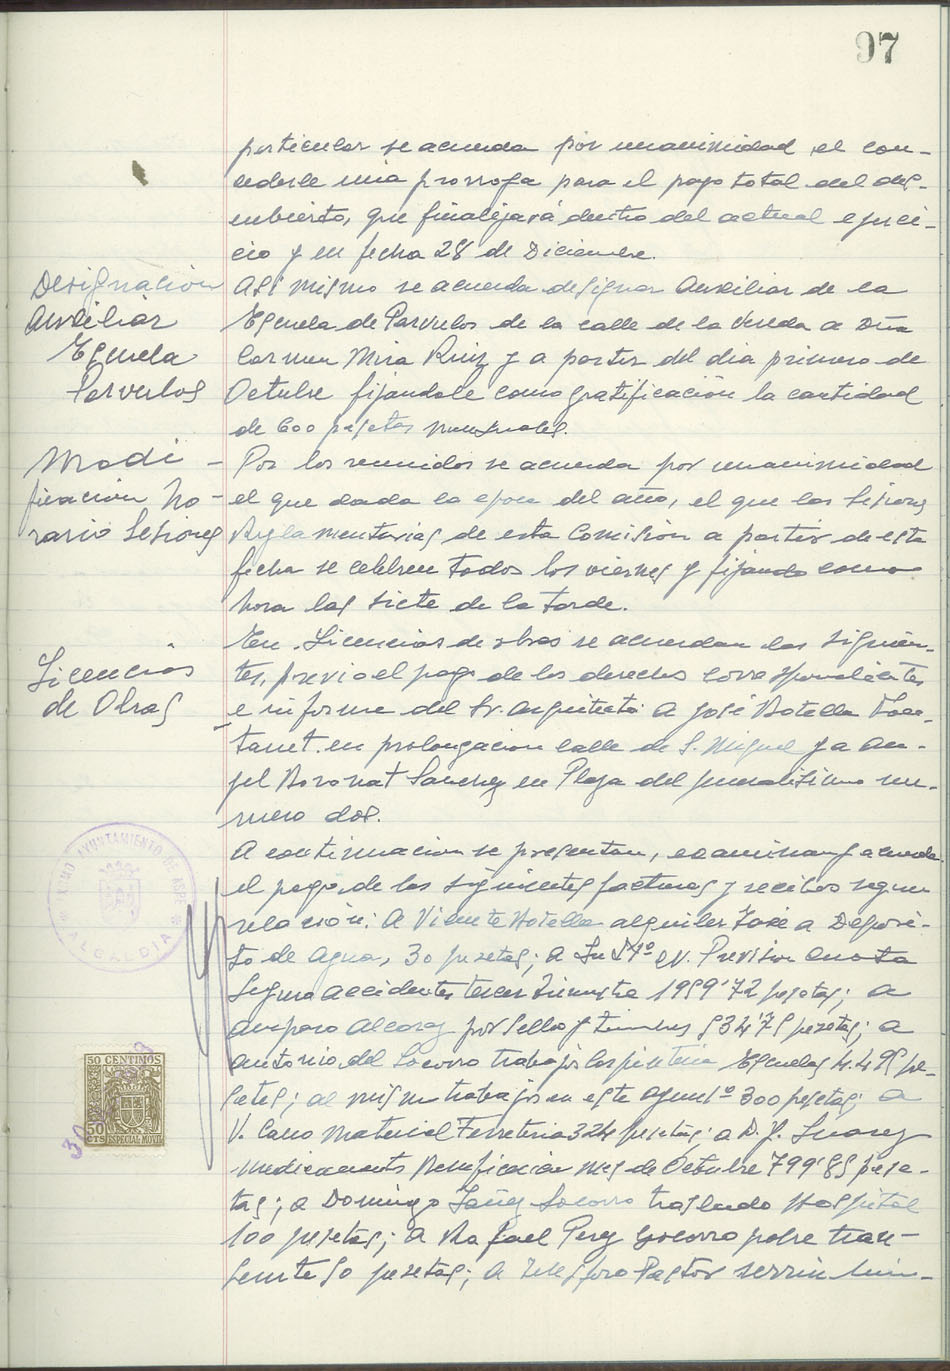 97
particular se acuerda por unanimidad el con-
cederle una prorroga para el pago total del des-
cubierto, que finalizará dentro del actual ejerci-
cio y en fecha 28 de Diciembre.
Designación
Auxiliar
Escuela
Parvulos
Asi mismo se acuerda designar Auxiliar de la
Escuela de Parvulos de la calle de la Vereda a Dña
Carmen Mira Ruiz y a partir del dia primero de
Octubre fijandole como gratificación la cantidad
de 600 pesetas mensuales.
Modi-
ficacion ho-
rario Sesiones
Por los reunidos se acuerda por unanimidad
el que dada la epoca del año, el que las Sesiones
Reglamentarias de esta Comisión a partir de esta
fecha se celebren todos los viernes y fijando como
hora las siete de la tarde.
Licencias
de Obras
En Licencias de obras se acuerdan las siguien-
tes, previo el pago de los derechos correspondientes
e informe del Sr. Arquitecto a José Botella
en prolongacion calle de S. Miguel y a An-
gel Boronat Sanchez en Plaza del Generalisimo nu-
mero dos.
A continuacion se presentan, examinan y acuerda
el pago de las siguientes facturas y recibos segun
relación: A Vicente Botella alquiler José a Deposi-
to de Agua, 30 pesetas; a Instº N. Prevision cuota
Seguro accidentes tercer trimestre 1959'72 pesetas; a
Amparo Alcaraz por sellos y timbres 534'75 pesetas; a
Antonio del Socorro trabajos carpinteria Escuelas 4.495 pe-
setas; al mismo trabajos en este Ayuntº 300 pesetas; a
V. Caro Material Ferreteria 324 pesetas; a D. J. Suarez
medicamentos Beneficencia mes de Octubre 799'85 pese-
tas; a Domingo Socorro traslado Hospital
100 pesetas; a Rafael Perez socorro pobre tran-
seunte 50 pesetas; a Telesforo Pastor serrin
EXCMO AYUNTAMIENTO DE ASPE
ALCALDIA
50 CENTIMOS
50
CTS
ESPECIAL MOVIL